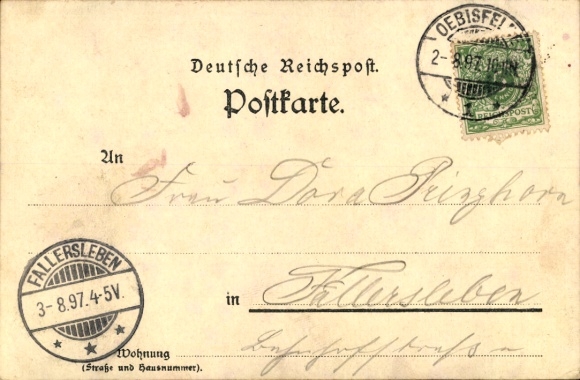 Deutsche Reichspost.
Postkarte.
OEBISFELDE
2-8.97.10-11N
* 1 *
REICHSPOST
An
Frau Dora Prinzhorn
FALLERSLEBEN
3-8.97.4-5V.
in Fallersleben
Wohnung
(Straße und Hausnummer).
Bahnhofstrasse